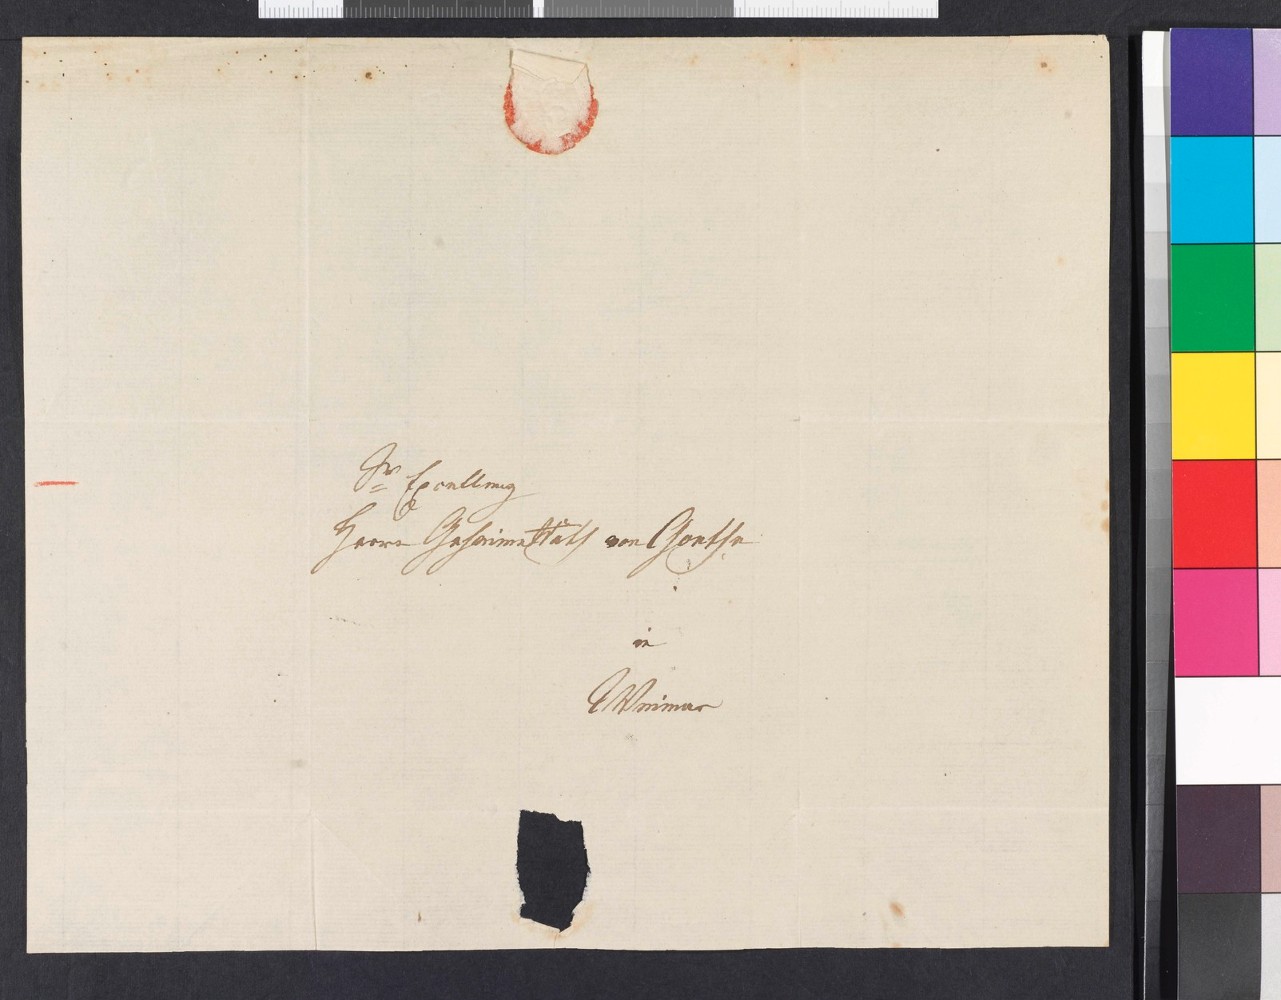 Sr Excellenz
Herrn Geheime Rath von Goethe
in
Weimar